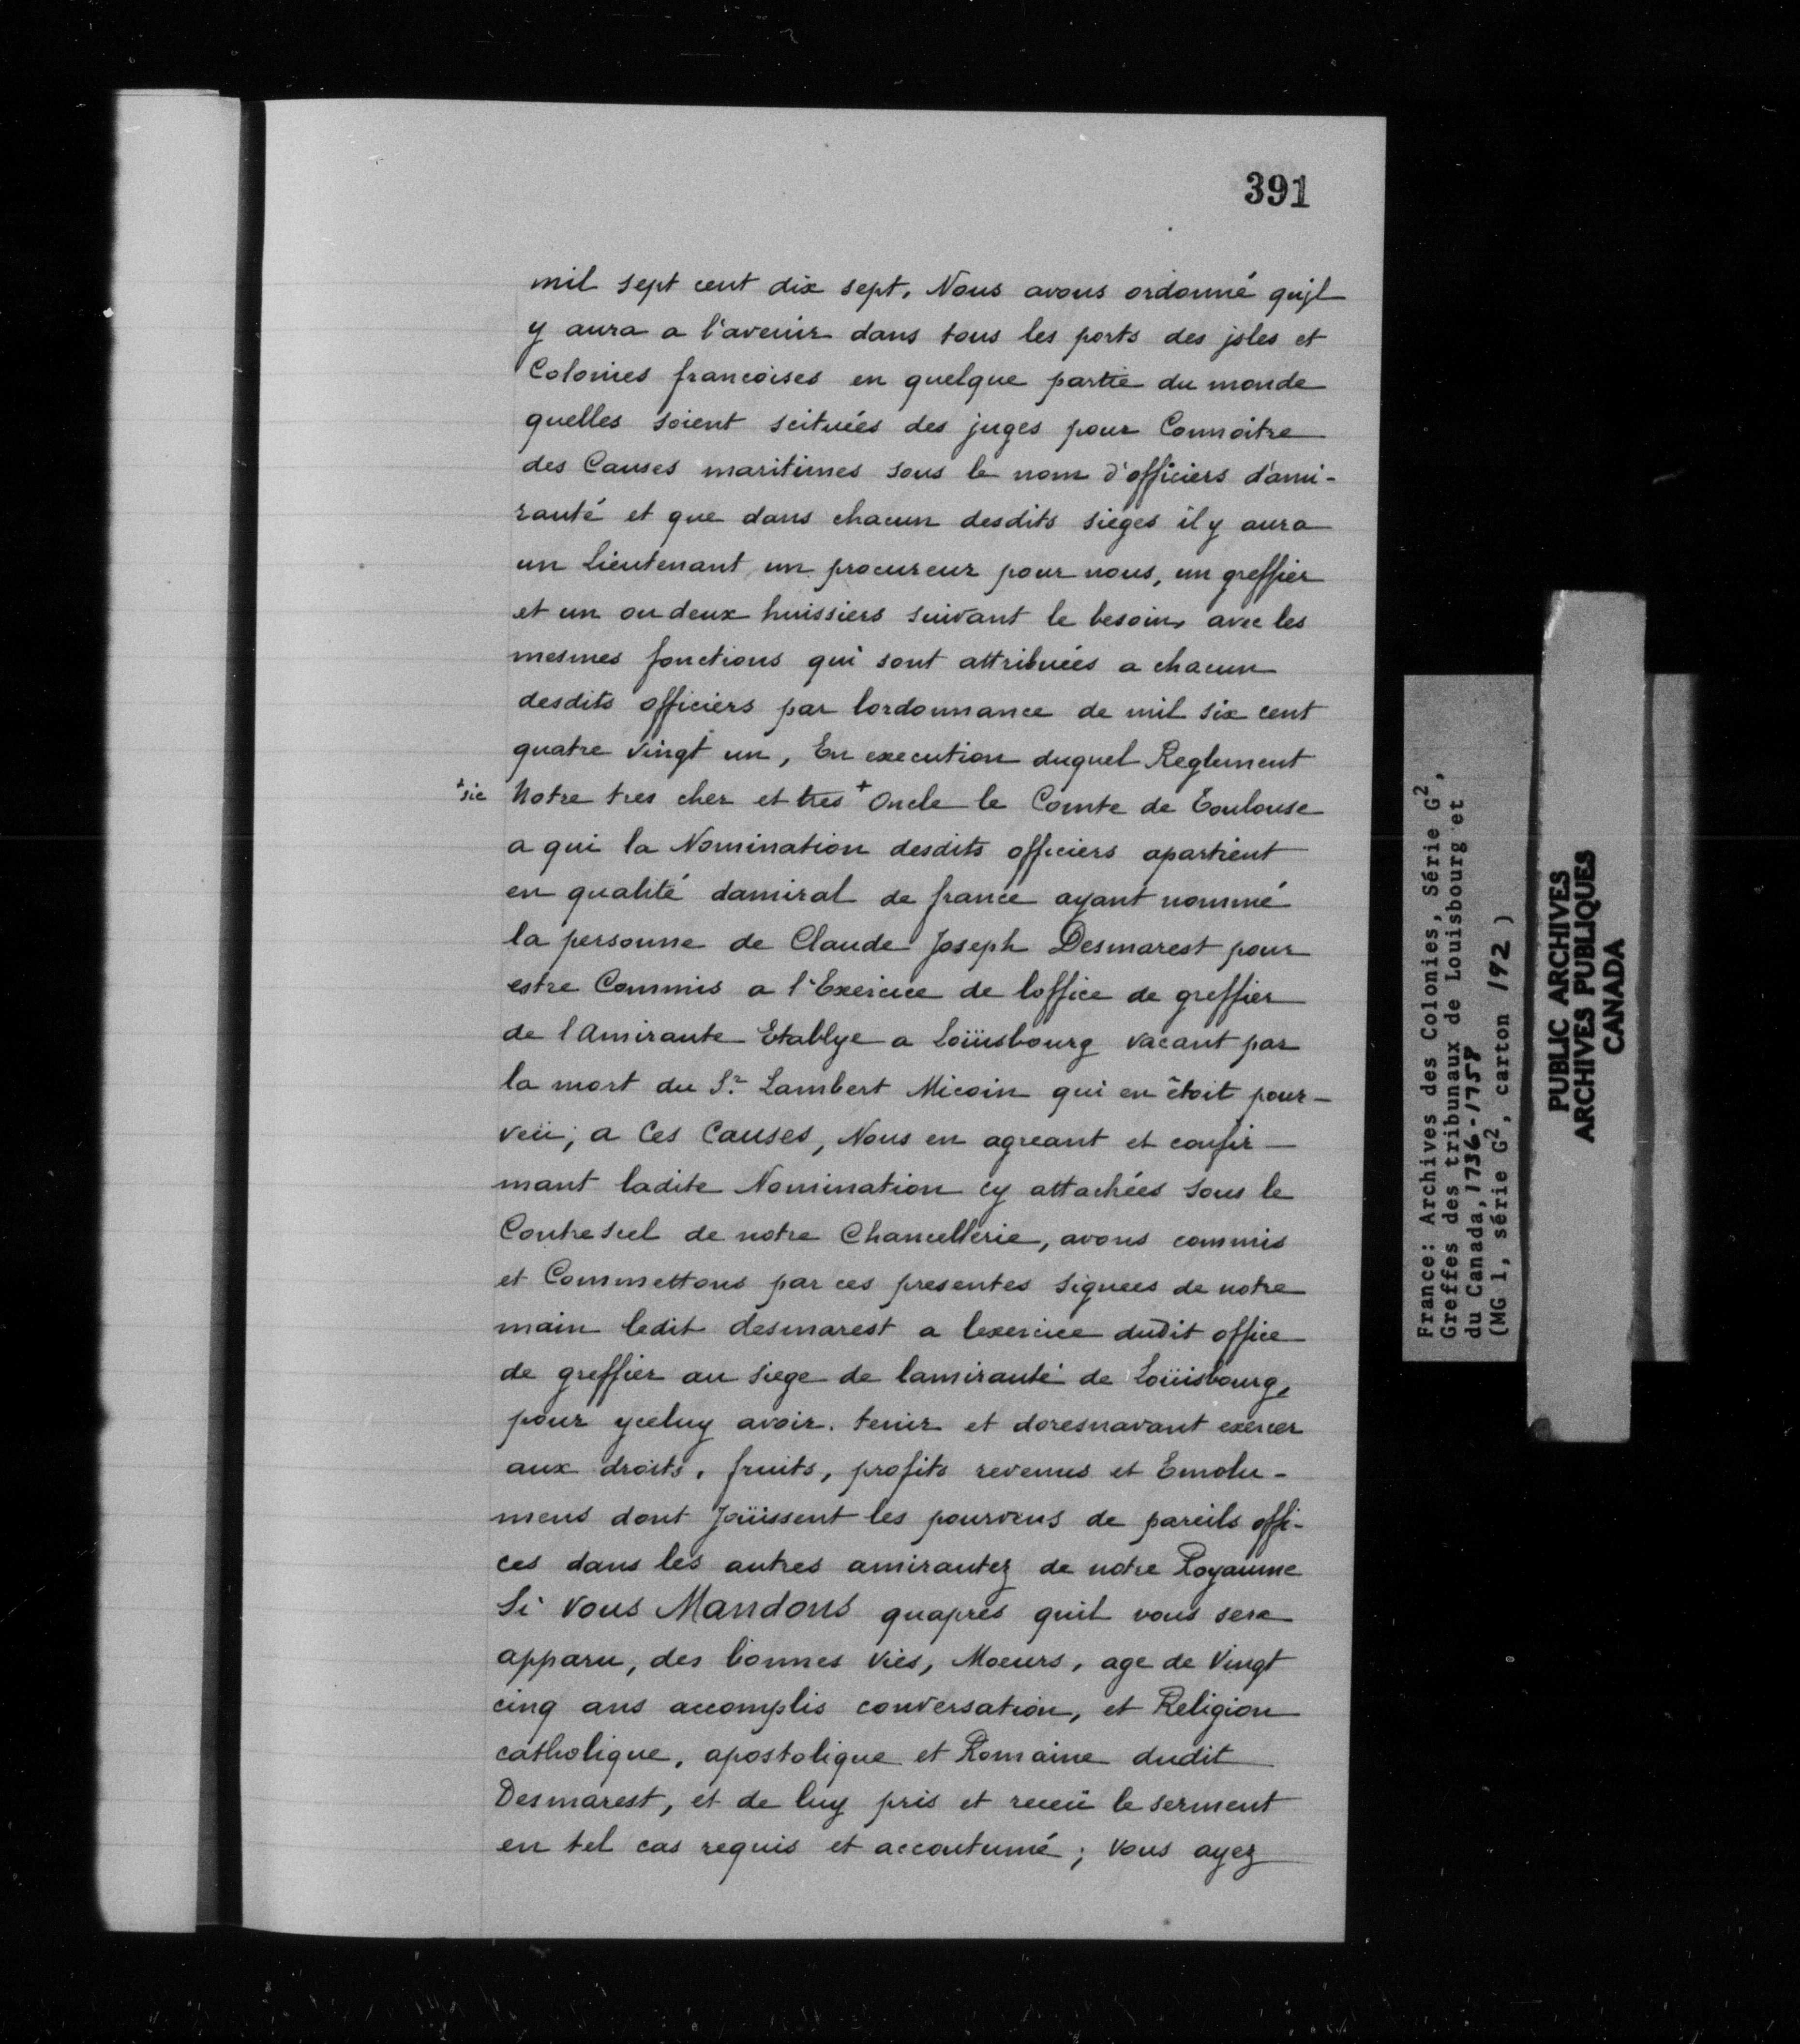 391
mil sept cent dix sept, Nous avons ordonné qu'jl
y aura a l'avenir dans tous les ports des jsles et
Colonies francoises en quelque partie du monde
quelles soient scituées des juges pour Connoitre
des Causes maritimes sous le nom d'officiers d'ami-
rauté et que dans chacun desdits sieges il y aura
un Lieutenant, un procureur pour nous, un greffier
et un ou deux huissiers suivant le besoin, avec les
mesmes fonctions qui sont attribuées a chacun
desdits officiers par lordonnance de mil six cent
quatre vingt un, En execution duquel Reglement
+ sic Notre tres cher et tres + Oncle le Comte de Toulouse
a qui la Nomination desdits officiers apartient
en qualité damiral de france ayant nommé
la personne de Claude Joseph Desmarest pour
estre Commis a l'Exercice de loffice de greffier
de l'Amiraute Etablye a Loüisbourg vacant par
la mort du Sr. Lambert Micoin qui en êtoit pour-
veü; a Ces Causes, Nous en agreant et confir-
mant ladite Nomination cy attachées sous le
Contrescel de notre Chancellerie, avons commis
et Commettons par ces presentes signees de notre
main ledit desmarest a lexercice dudit office
de greffier au siege de lamirauté de Loüisbourg,
pour yceluy avoir. tenir et doresnavant exercer
aux droits, fruits, profits revenus et Emolu-
mens dont Joüissent les pourveus de pareils offi-
ces dans les autres amirautez de notre Royaume
Si Vous Mandons quaprés quil vous sera
apparu, des bonnes vies, Moeurs, age de Vingt
cinq ans accomplis conversation, et Religion
catholique, apostolique et Romaine dudit
Desmarest, et de luy pris et receü le serment
en tel cas requis et accoutumé; Vous ayez
France: Archives des Colonies, Série G2,
Greffes des tribunaux de Louisbourg et
du Canada, 1736-1758
(MG 1, série G2, carton 192)
PUBLIC ARCHIVES
ARCHIVES PUBLIQUES
CANADA